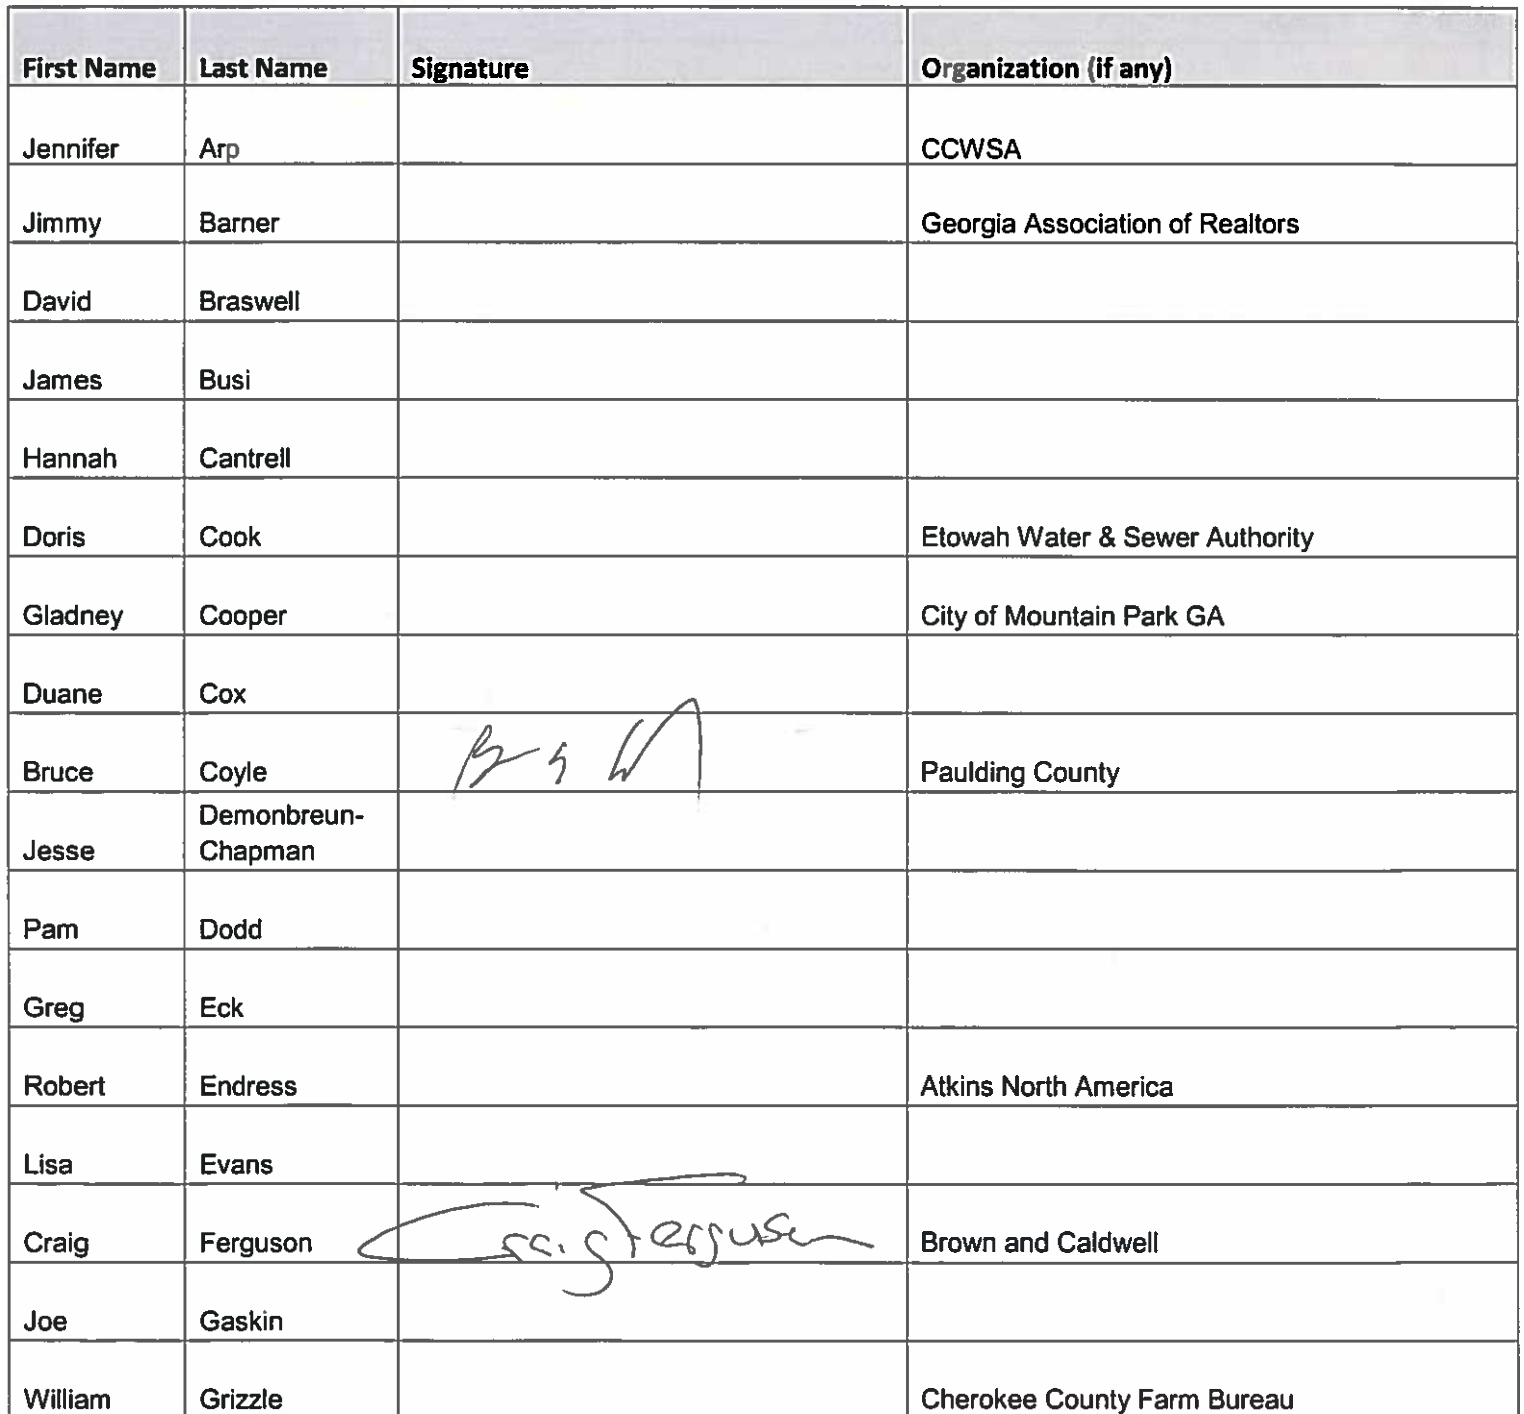 First Name Last Name Signature Organization (if any)
Jennifer Arp CCWSA
Jimmy Barner Georgia Association of Realtors
David Braswell
James Busi
Hannah Cantrell
Doris Cook Etowah Water & Sewer Authority
Gladney Cooper City of Mountain Park GA
Duane Cox
Bruce Coyle Paulding County
Demonbreun-
Jesse Chapman
Pam Dodd
Greg Eck
Robert Endress Atkins North America
Lisa Evans
Craig Ferguson Craig Ferguson Brown and Caldwell
Joe Gaskin
William Grizzle Cherokee County Farm Bureau